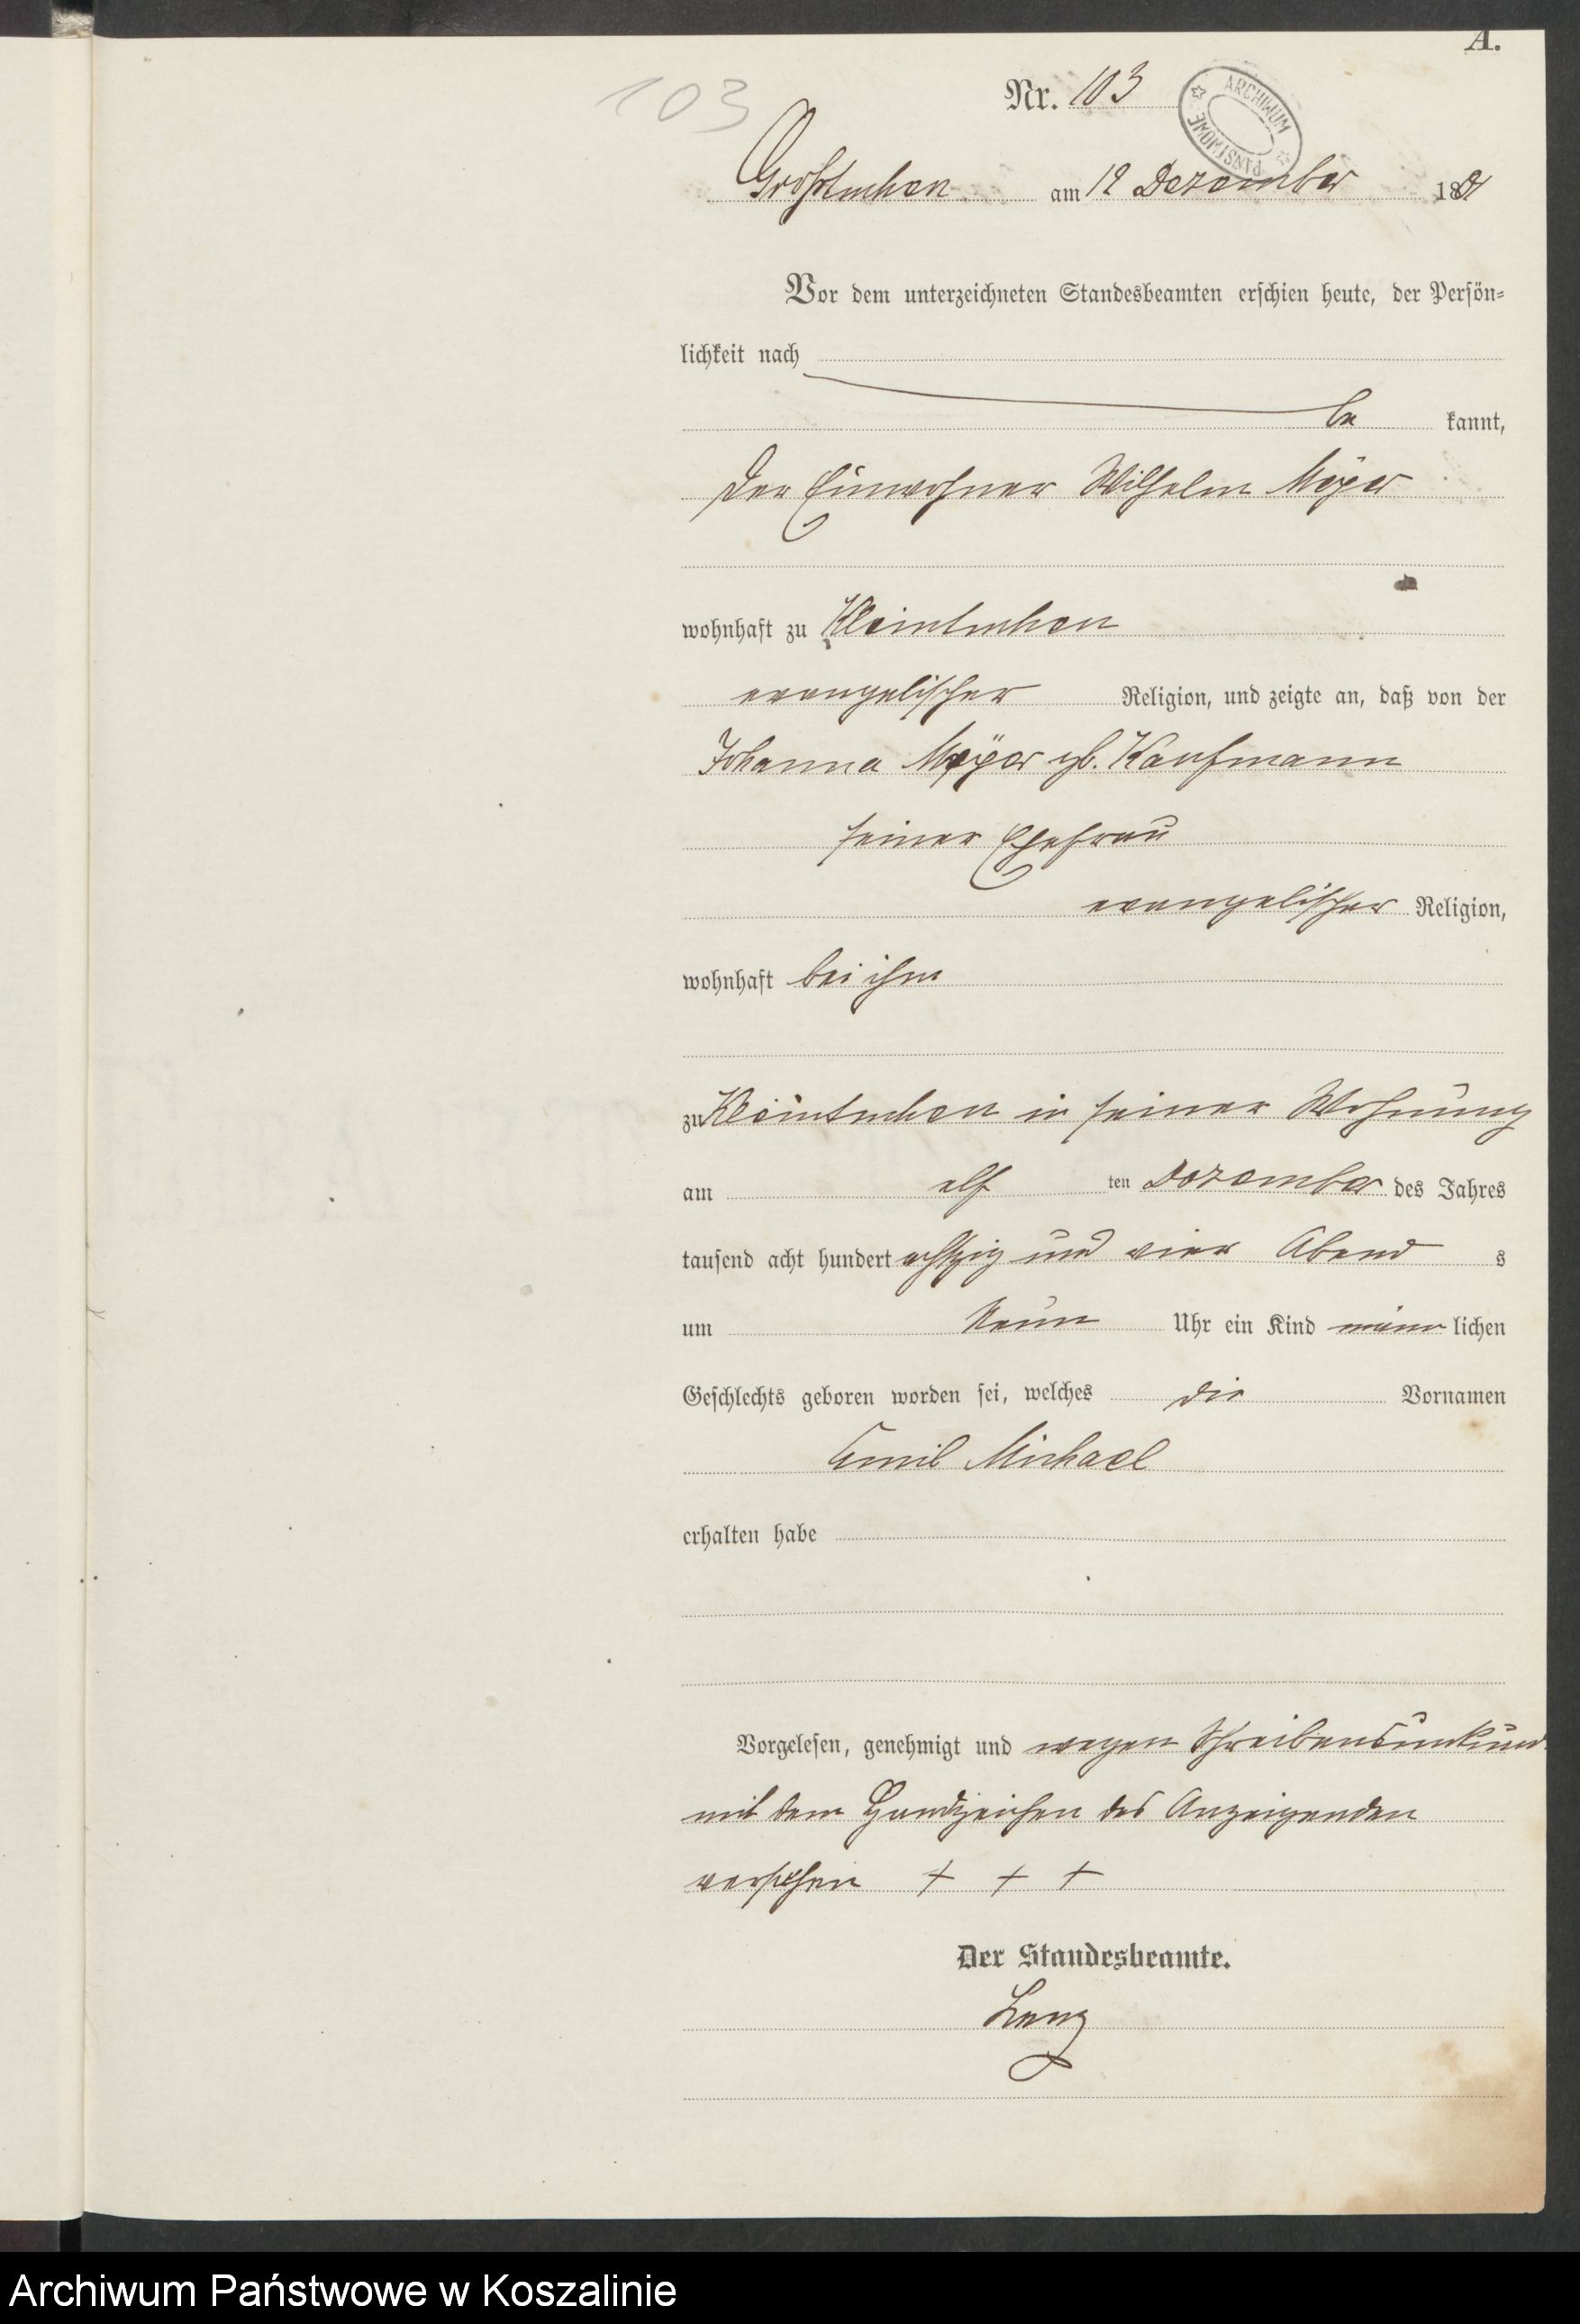 A.
103
Nr. 103
ARCHIWUM PAŃSTWOWE
Großtuchen am 12 Dezember 1884
Vor dem unterzeichneten Standesbeamten erschien heute, der Persön-
lichkeit nach
be kannt,
der Einwohner Wilhelm Meÿer
wohnhaft zu Kleintuchen
evangelischer Religion, und zeigte an, daß von der
Johanna Meÿer gb. Kaufmann
seiner Ehefrau
evangelischer Religion,
wohnhaft bei ihm
zu Kleintuchen in seiner Wohnung
am elf ten Dezember des Jahres
tausend acht hundert achtzig und vier Abend s
um Neun Uhr ein Kind männ lichen
Geschlechts geboren worden sei, welches die Vornamen
Emil Michael
erhalten habe
Vorgelesen, genehmigt und wegen Schreibensunkund
mit dem Handzeichen des Anzeigenden
versehen + + +
Der Standesbeamte.
Archiwum Państwowe w Koszalinie